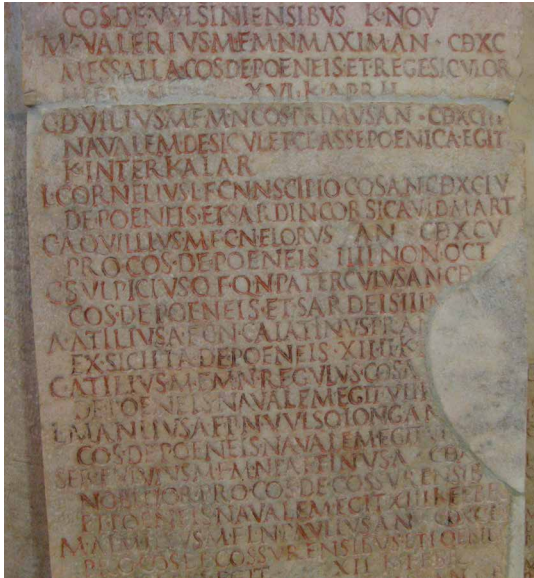 COS·DE·VVLSINIENSIBVS K·NOV
M·VALERIVS·M·F·M·N·MAXIM AN · CDXC
MESSALLA·COS·DE·POENEIS·ET·REGE·SICVLOR
XVI·K·APRIL
C·DVILIVS·M·F·M·N·COS·PRIMVS·AN · CDXCIII
NAVALEM·DE·SICVL·ET·CLASSE·POENICA·EGIT
K·INTERKALAR
L·CORNELIVS·L·F·CN·N·SCIPIO COS·AN·CDXCIV
DE·POENEIS·ET·SARDIN·CORSICA·V·ID·MART
C·AQVILLIVS·M·F·C·N·FLORVS AN CDXCV
PRO·COS·DE·POENEIS IIII·NON·OCT
C·SVLPICIVS·Q·F·Q·N·PATERCVLVS·AN·CD
COS·DE·POENEIS·ET·SARDEIS·III
A·ATILIVS·A·F·C·N·CAIATINVS·PRAI
EX·SICILIA·DE·POENEIS·XIIII·K
C·ATILIVS·M·F·M·N·REGVLVS·COS·A
DE·POENEIS·NAVALEM·EGIT·VIII
L·MANLIVS·A·F·P·N·VVLSO·LONG·AN
COS·DE·POENEIS·NAVALEM·EGIT
SER·FVLVIVS·M·F·M·N·PAETINVS·A · CD
NOBILIOR·PRO·COS·DE·COSSVRENSIB
ET·POENEIS·NAVALEM·EGIT·XIII·K·FEBR
M·AIMILIVS·M·F·L·N·PAVLLVS·AN · CDXCIX
PRO·COS·DE·COSSVRENSIBVS·ET·POENEIS
XII·K·FEBR